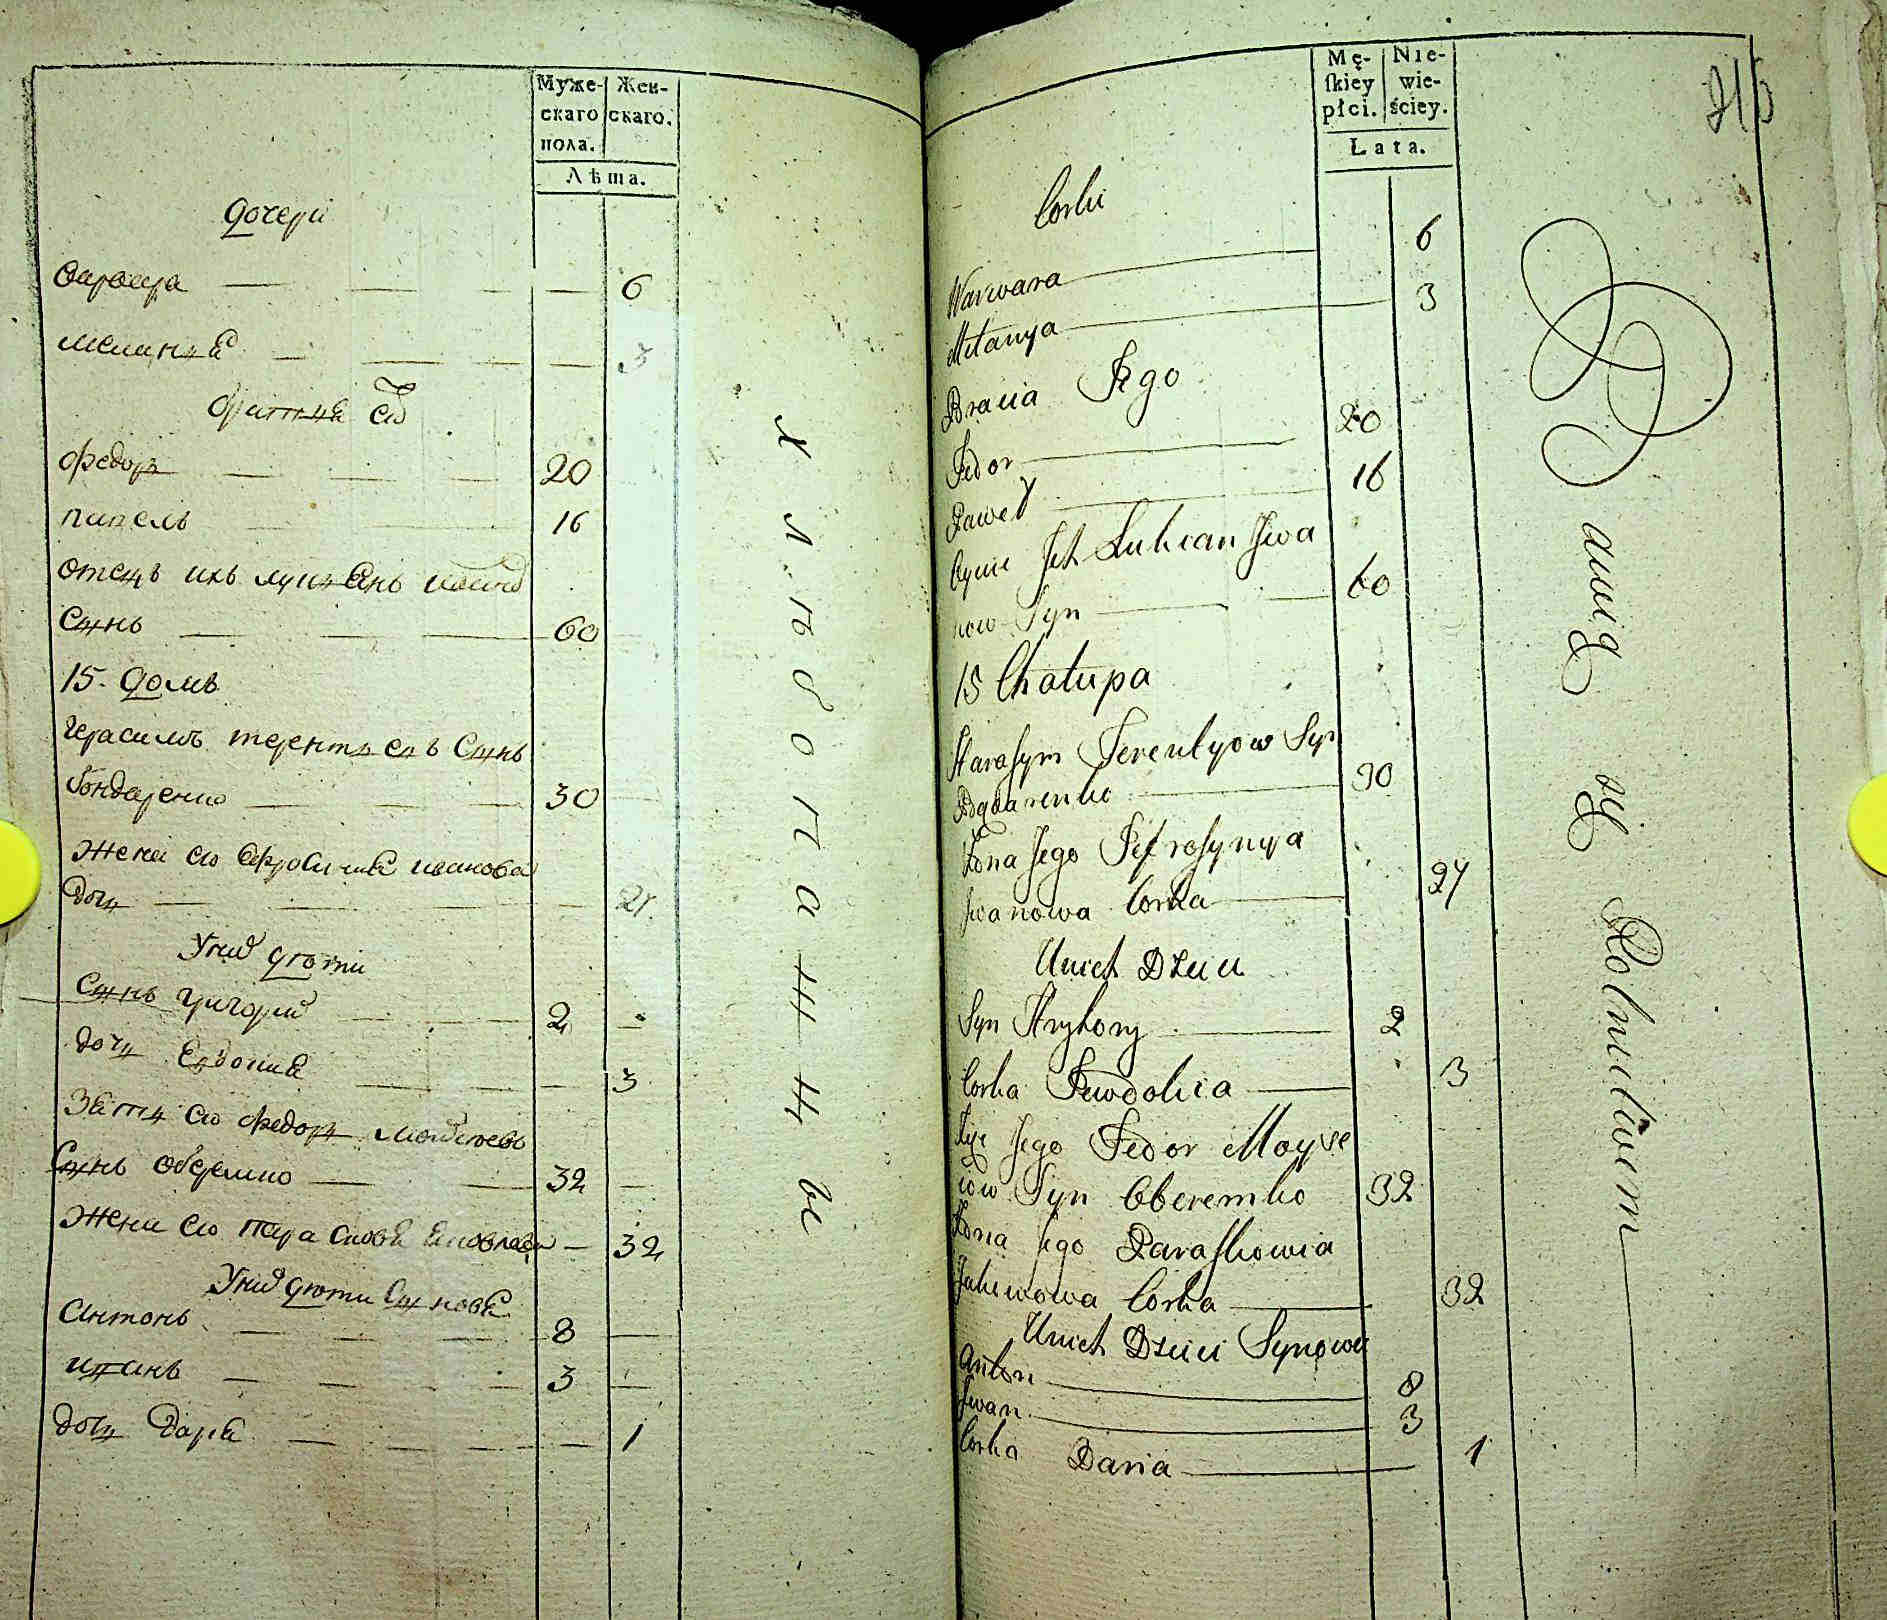 Муже-
скаго
пола.
Жен-
скаго.
Лѣта.
дочери
варвара 6
меланія 3
братия его
федоръ 20
павелъ 16
отецъ ихъ лукиянъ иванов
Сынъ 60
15. домъ
герасимъ терентиевъ Сынъ
бондаренко 30
жена его Ефросиния иванова
дочь 27
У них дети
Сынъ григорий 2
дочь Евдокия 3
Зять его федоръ моисеевъ
Сынъ оберемко 32
жена его парасковия яковлева 32
У них дети Сыновя
антонъ 8
иванъ 3
дочь дария 1
хлѣбопашцы
Mę-
ſkiey
płci.
Nie-
wie-
ściey.
Lata.
Corki
Warwara 6
Melanya 3
Bracia Jego
Fedor 20
Paweł 16
Oyciec Jch Lukian Jwa
now Syn 60
15 Chałupa
Harasym Terentyow Syn
Bondarenko 30
Żona Jego Jefrosynya
Jwanowa Corka 27
U nich Dzieci
Syn Hryhory 2
Corka Jewdokia 3
Zięć Jego Fedor Moyse
iow Syn Oberemko 32
Żona Jego Paraskowia
Jakowowa Corka 32
U nich Dzieci Synowie
Anton 8
Jwan 3
Corka Daria 1
Rolnictwem